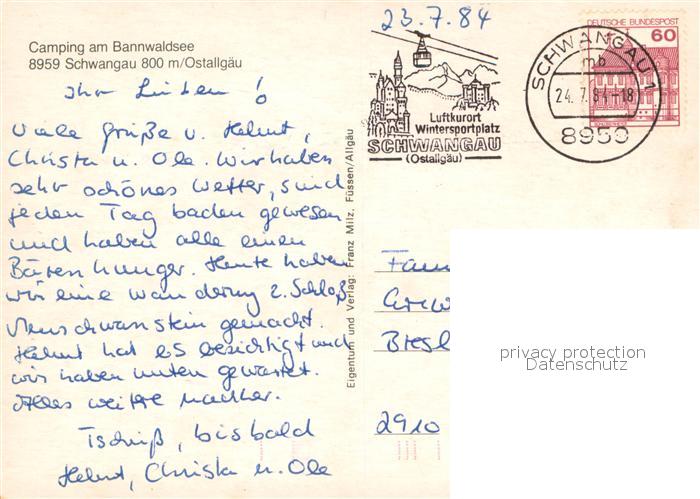 Camping am Bannwaldsee
8959 Schwangau 800 m/Ostallgäu
Ihr Lieben!
Viele Grüße v. Helmut,
Christa u. Ole. Wir haben
sehr schönes Wetter, sind
jeden Tag baden gewesen
und haben alle einen
Bärenhunger. Heute haben
wir eine Wanderung z. Schloß
Neuschwanstein gemacht.
Helmut hat es besichtigt und
wir haben unten gewartet.
Alles weitere nachher.
Tschüß, bis bald
Helmut, Christa u. Ole
Eigentum und Verlag: Franz Milz, Füssen/Allgäu
23.7.84
Luftkurort
Wintersportplatz
SCHWANGAU
(Ostallgäu)
DEUTSCHE BUNDESPOST
60
SCHWANGAU 1
mb
24.7.84-18
8959
Fam
Bresl
2910
privacy protection
Datenschutz